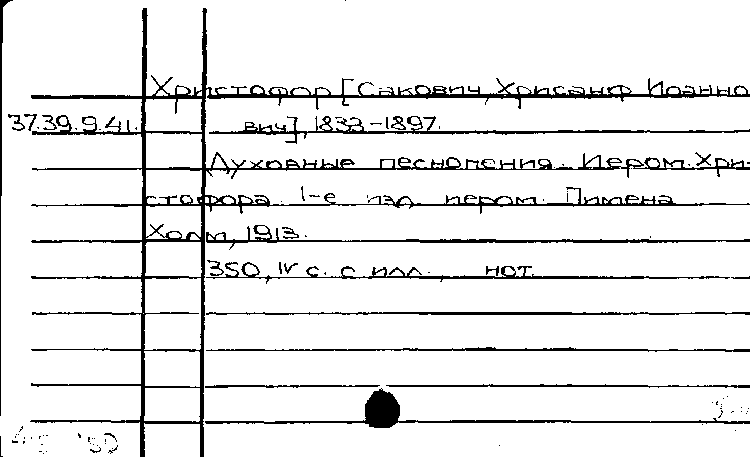 Христофор [Сакович, Хрисанф Иоанно
37.39.9.41. вич], 1833-1897.
Духовные песнопения. Иером. Хри-
стофора. 1-е изд. иером. Пимена
Холм, 1913.
350, IV с. с илл., нот.